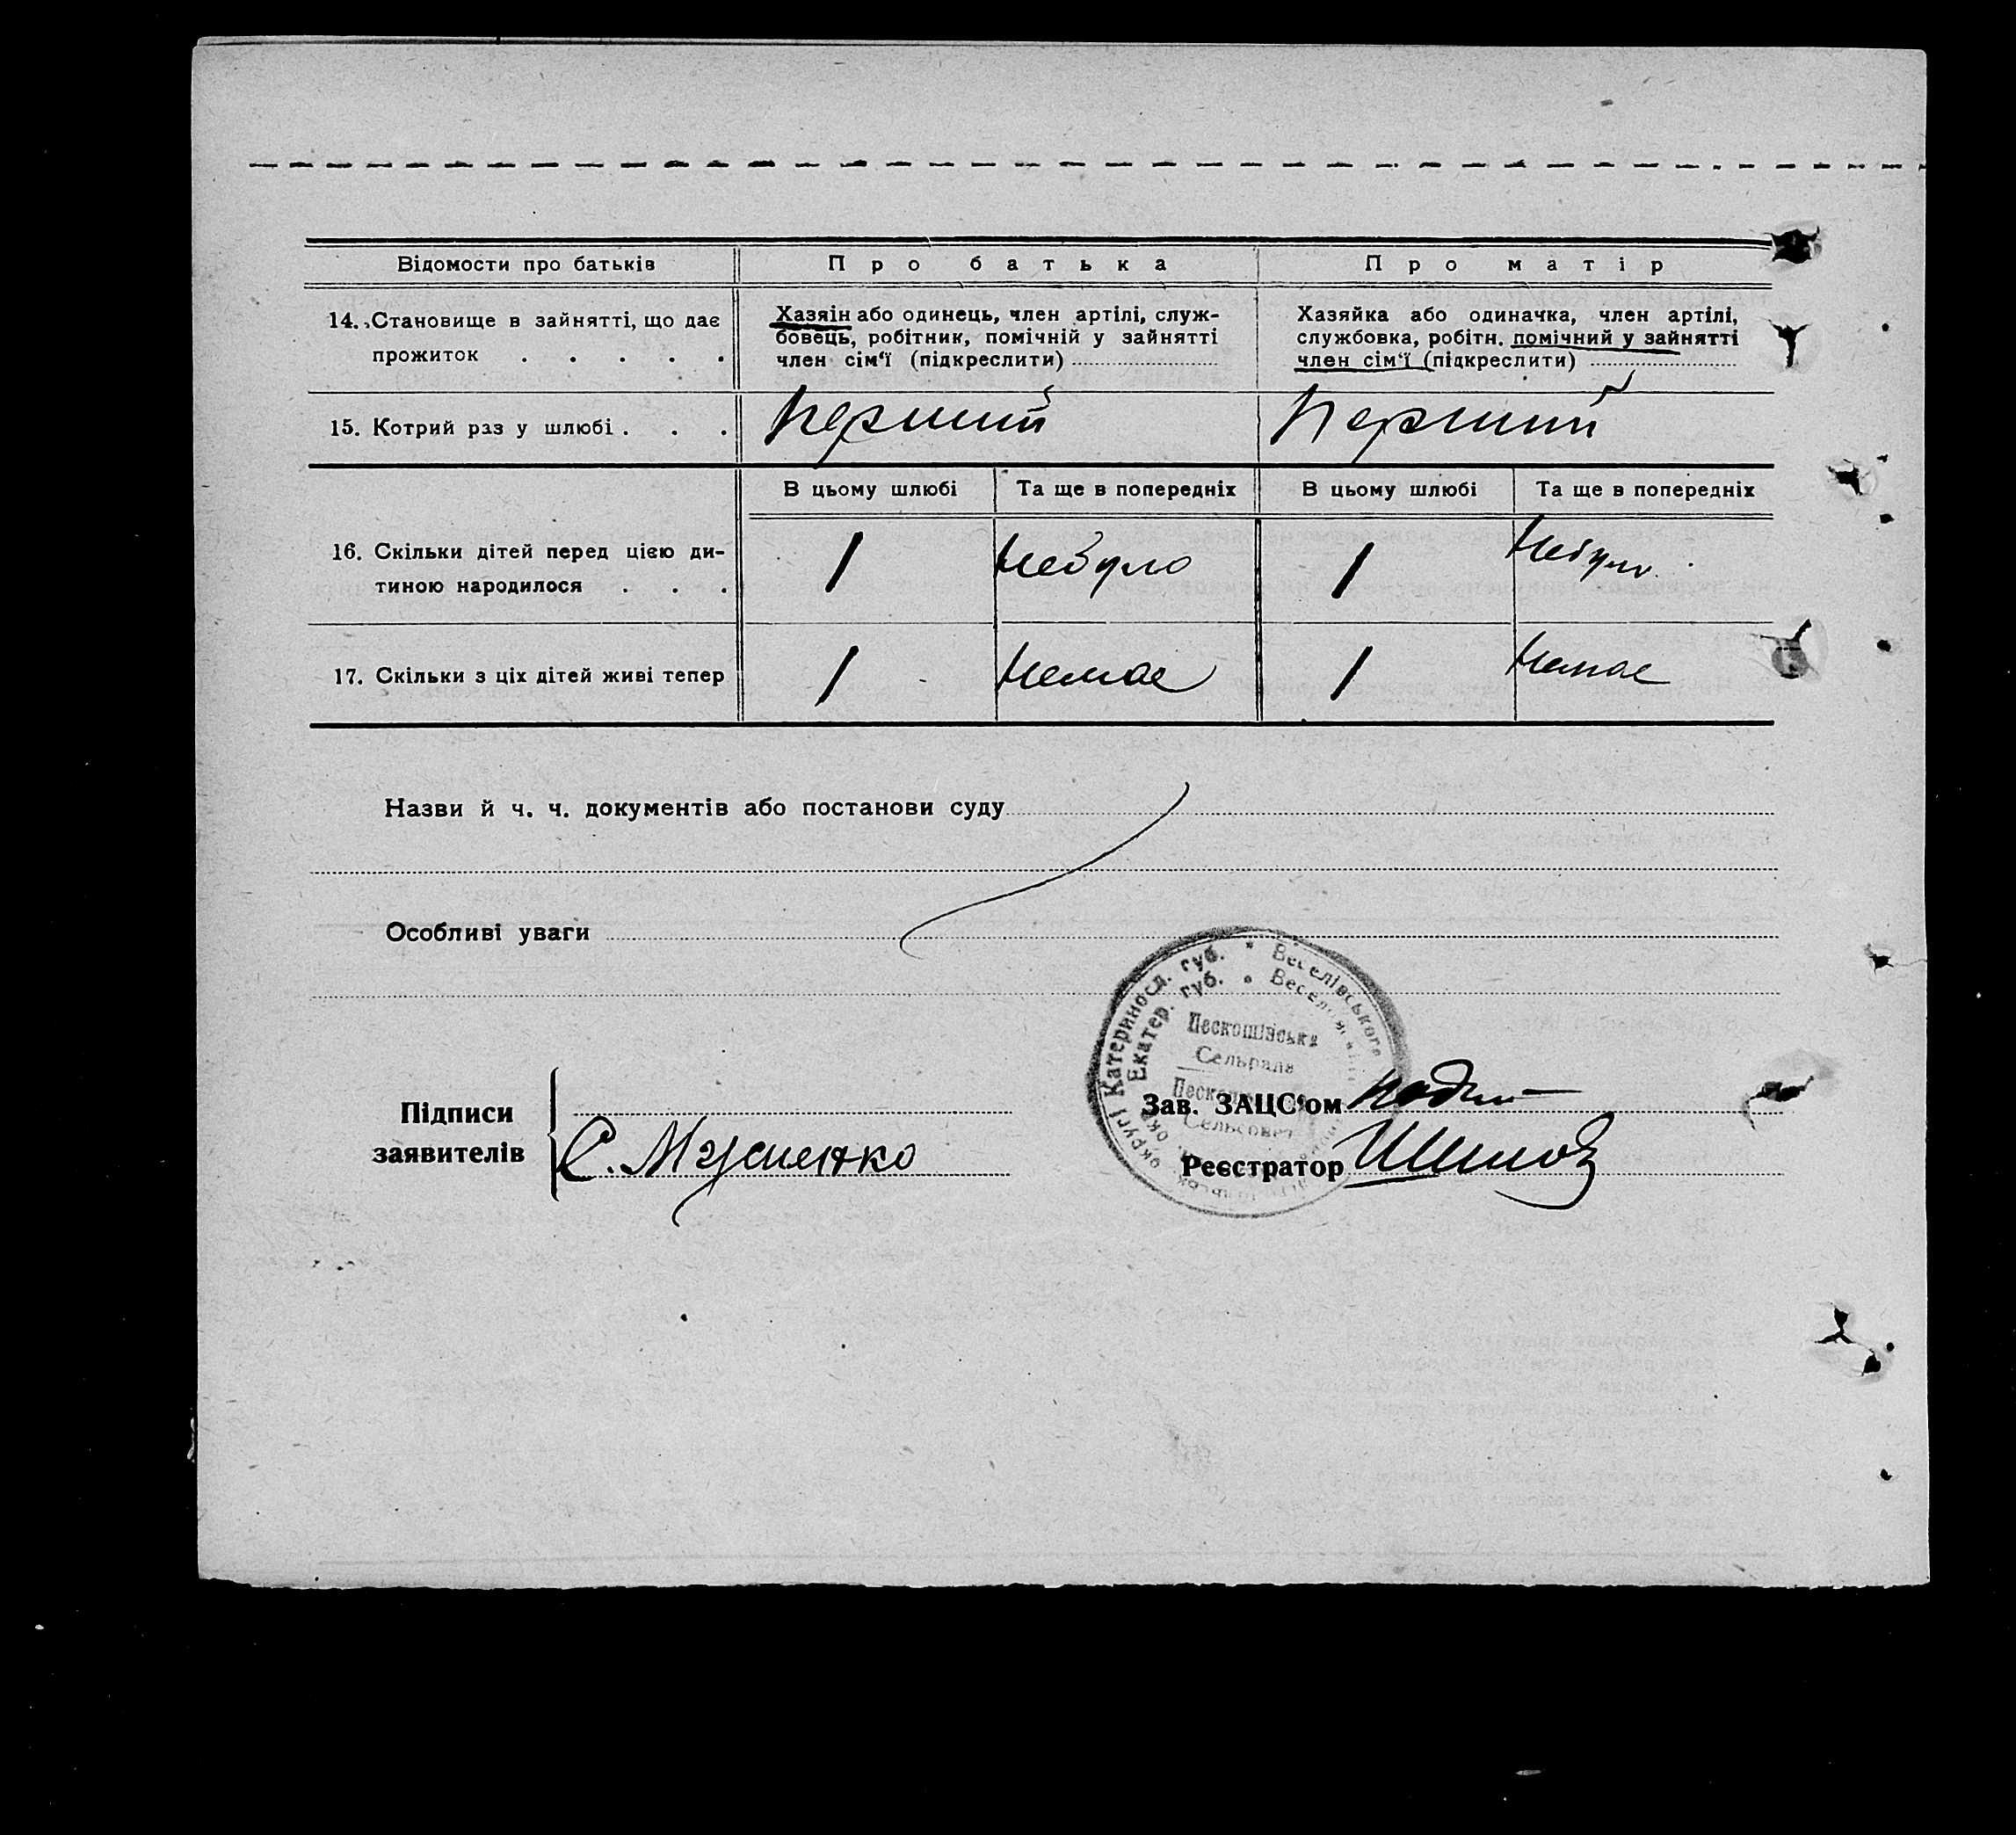 Відомости про батьків
Про батька
Про матір
14. Становище в зайнятті, що дає
прожиток . . . . .
Хазяін або одинець, член артілі, служ-
бовець, робітник, помічній у зайнятті
член сім'ї (підкреслити)
Хазяйка або одиначка, член артілі,
службовка, робітн. помічний у зайнятті
член сім'ї (підкреслити)
15. Котрий раз у шлюбі . . .
Перший
Перший
В цьому шлюбі
Та ще в попередніх
В цьому шлюбі
Та ще в попередніх
16. Скільки дітей перед цією ди-
тиною народилося . . .
1
Небуло
1
Небуло
17. Скільки з ціх дітей живі тепер
1
Немає
1
Немає
Назви й ч. ч. документів або постанови суду
Особливі уваги
округі Катериносл. губ. * Веселівського
Екатер. губ.
Сельрада
Сельсовет
Підписи
заявителів
С. Мусиенко
Зав. ЗАЦС'ом
Реєстратор